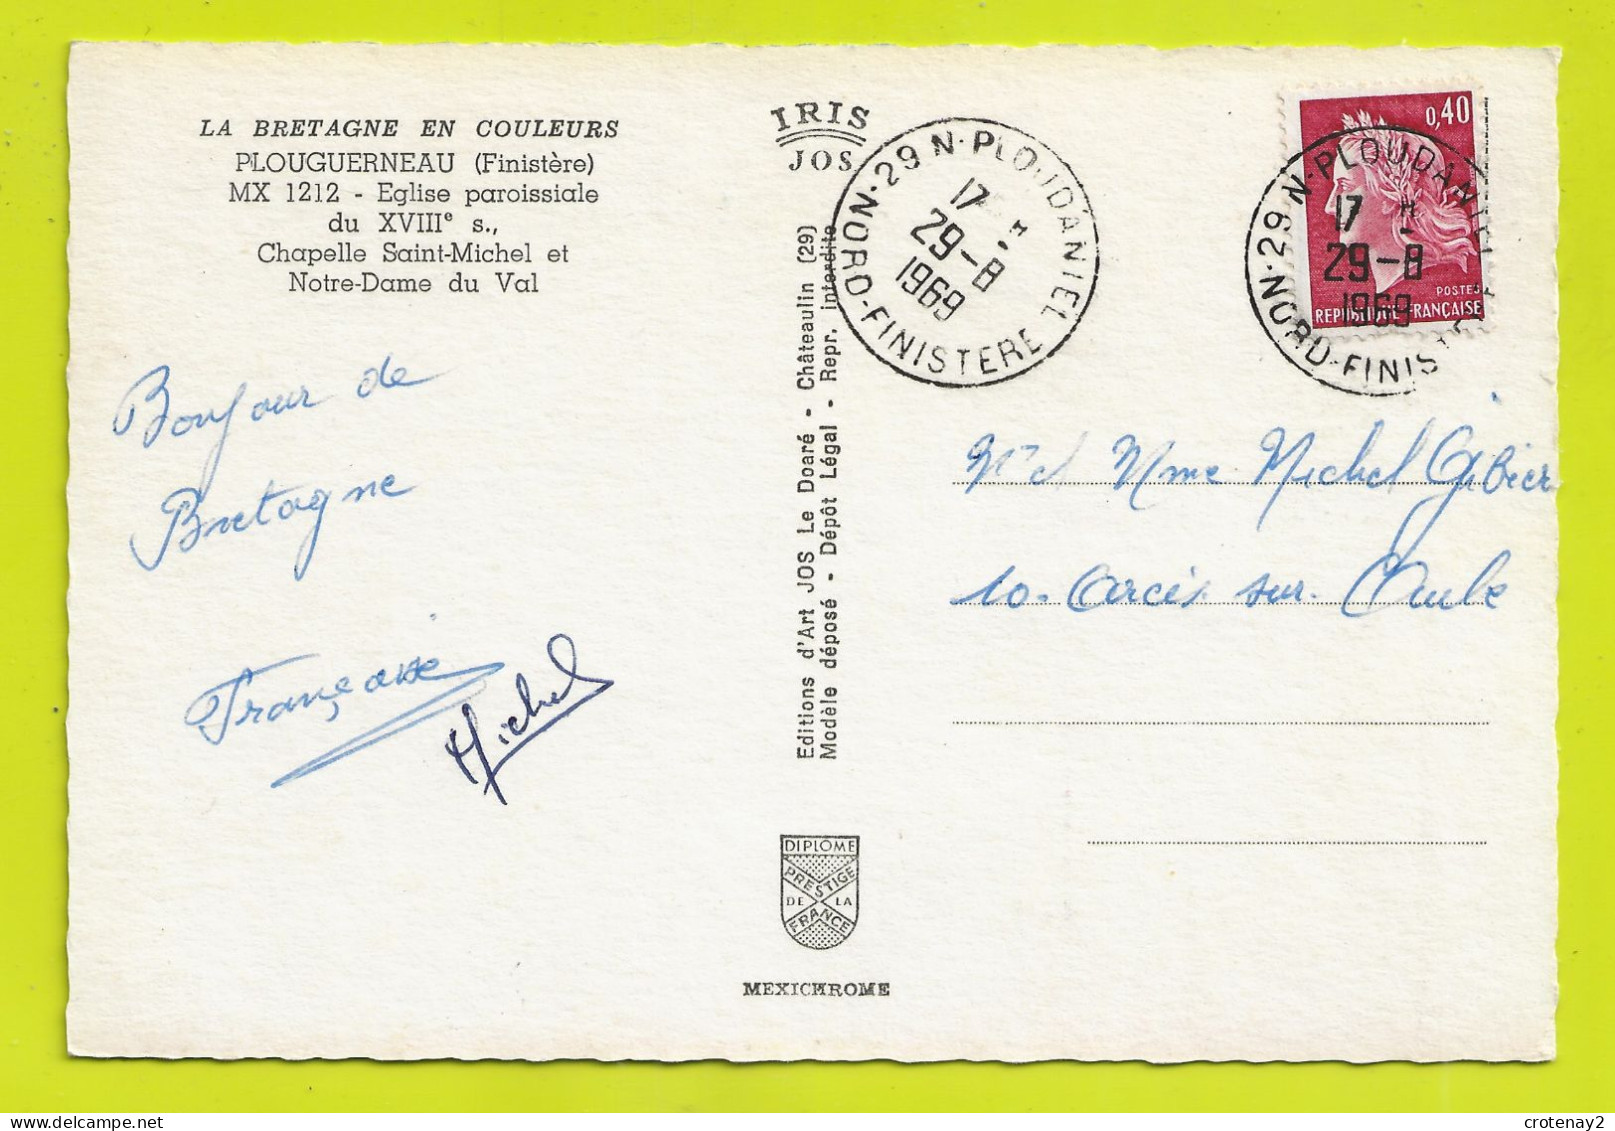 LA BRETAGNE EN COULEURS
PLOUGUERNEAU (Finistère)
MX 1212 - Eglise paroissiale
du XVIIIe s.,
Chapelle Saint-Michel et
Notre-Dame du Val
Bonjour de
Bretagne
Françoise
Michel
IRIS
JOS
Editions d'Art JOS Le Doaré - Châteaulin (29)
Modèle déposé - Dépôt Légal - Repr. interdite
DIPLOME
PRESTIGE
DE LA
FRANCE
MEXICHROME
29 N-PLOUDANIEL
17 H
29-8
1969
NORD-FINISTERE
0,40
POSTES
REPUBLIQUE FRANÇAISE
29 N-PLOUDANIEL
17 H
29-8
1969
NORD-FINISTERE
Mr et Mme Michel Gibier
10. Arcis sur Aube
crotenay2